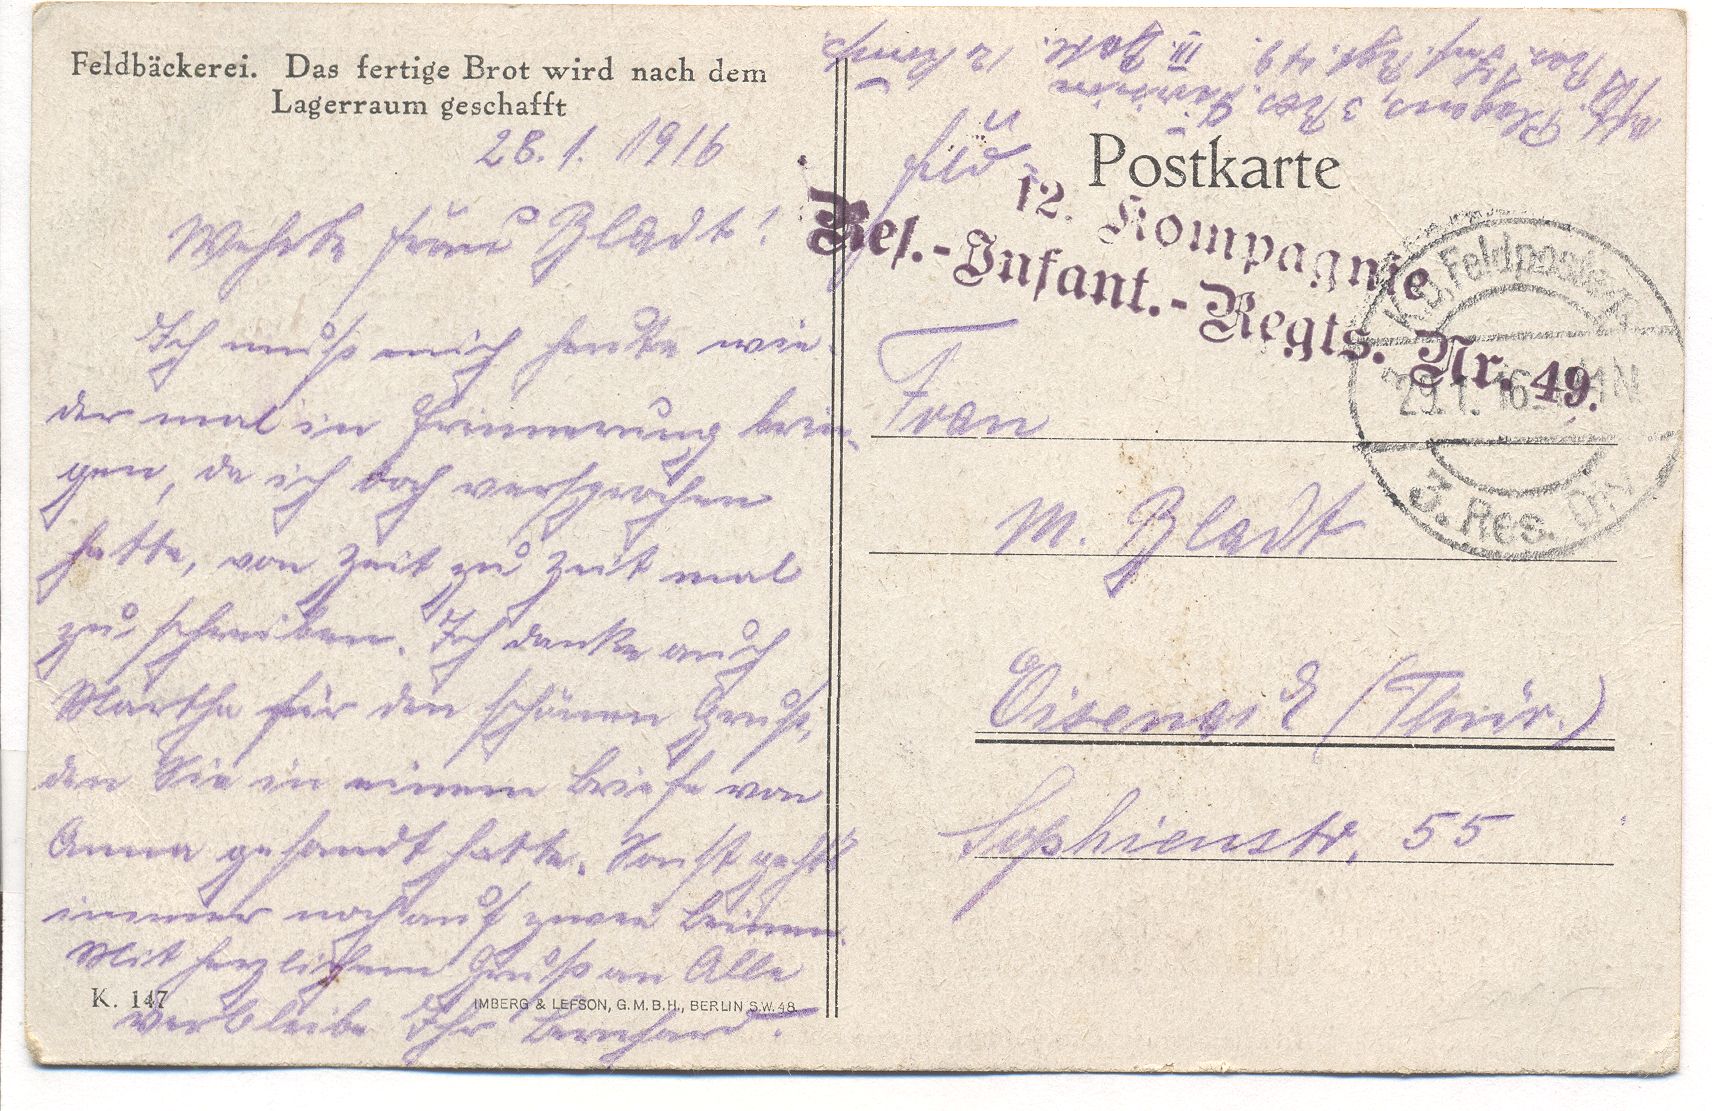 Feldbäckerei. Das fertige Brot wird nach dem
Lagerraum geschafft
28. 1. 1916
Wehrte Frau Bladt!
Ich muß mich heute wie-
der mal in Erinnerung brin-
gen, da ich doch versprochen
hatte, von Zeit zu Zeit mal
zu schreiben. Ich danke auch
Martha für den schönen Gruß,
den Sie in einem Briefe von
Anna gesandt hatte. Sonst geht's
immer noch auf zwei Beinen.
Mit herzlichem Gruß an Alle
verbleibe Ihr Bernhard.
K. 147
IMBERG & LEFSON, G.M.B.H., BERLIN S.W.48.
3 Res. Division
Res. Inf. Rgt. 49. III. Batl. 12 Komp.
Postkarte
12. Kompagnie
Res.-Infant.-Regts. Nr. 49.
K.D. Feldpostex
29.1.16
3. Res. Div.
Frau
M. Bladt
Eisenach (Thür.)
Sophienstr. 55